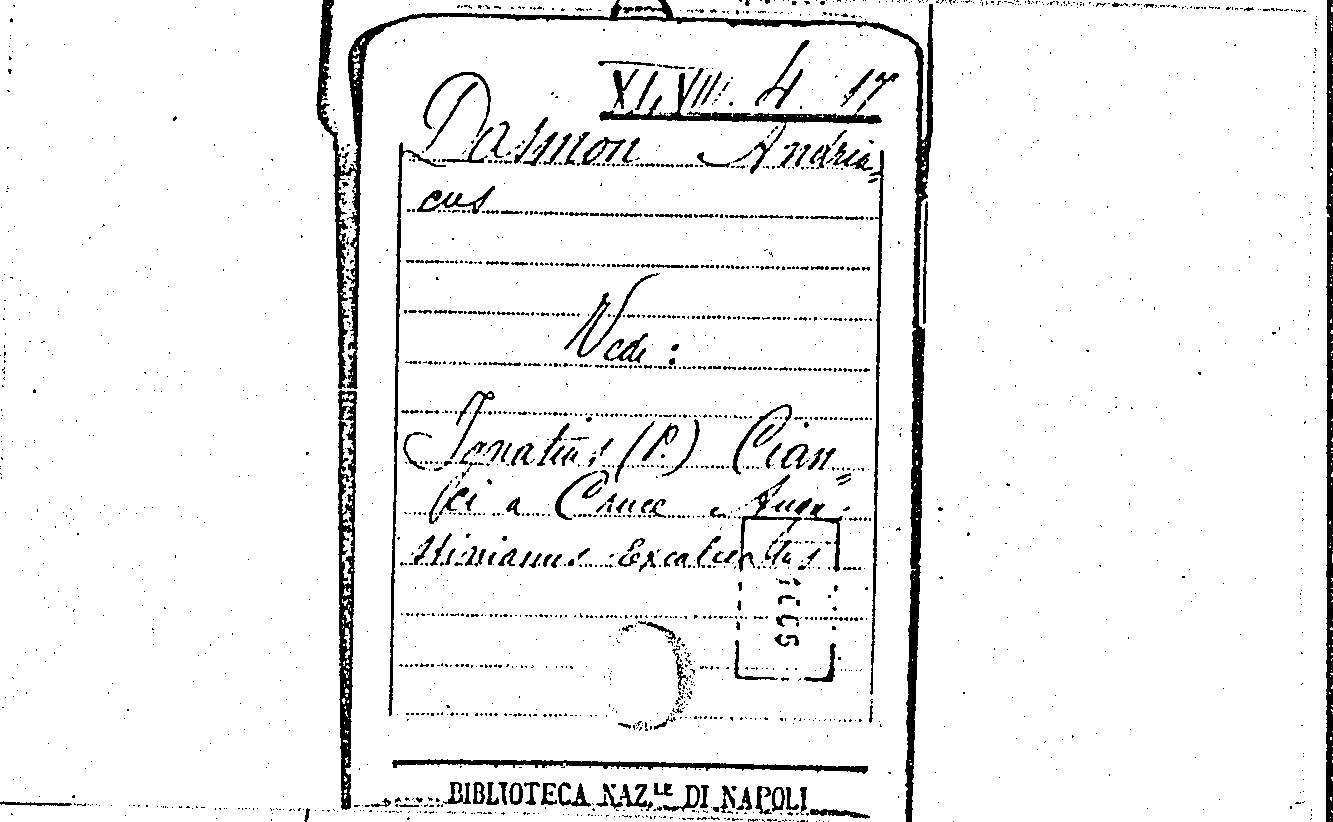 XLVIII. 4 17
Dasmon Andria=
cus
Vedi:
Ignatius (P.) Cian=
fci a Cruce Augu-
stinianus Excalceatus
BIBLIOTECA NAZ.LE DI NAPOLI